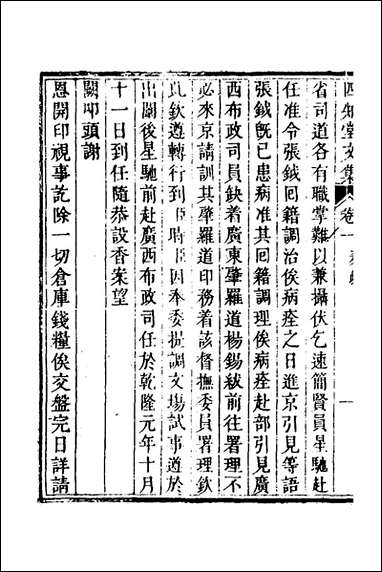 四知堂文集 卷一 奏疏 一
省司道各有職掌難以兼攝伏乞速簡賢員星馳赴
任准令張鉞回籍調治俟病痊之日進京引見等語
張鉞旣已患病准其回籍調理俟病痊赴部引見廣
西布政司員缺着廣東肇羅道楊錫紱前往署理不
必來京請訓其肇羅道印務着該督撫委員署理欽
此欽遵轉行到臣時臣因奉委提調文場試事遵於
出闈後星馳前赴廣西布政司任於乾隆元年十月
十一日到任隨恭設香案望
闕叩頭謝
恩開印視事訖除一切倉庫錢糧俟交盤完日詳請